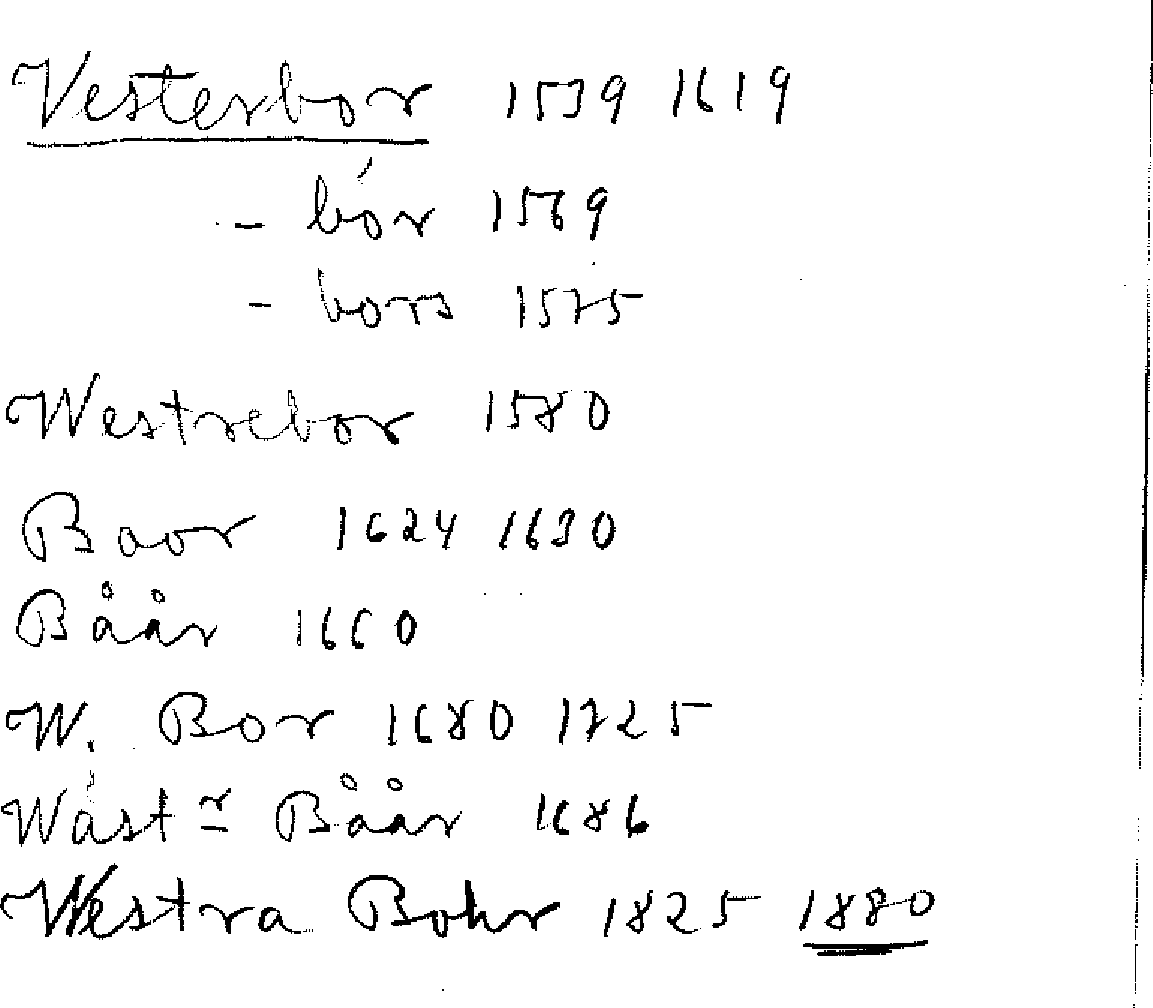 Vesterbor 1539 1619
- bór 1569
- bors 1575
Westrebor 1580
Baor 1624 1630
Båår 1660
W. Bor 1680 1725
Wäst r Båår 1686
Westra Bohr 1825 1880